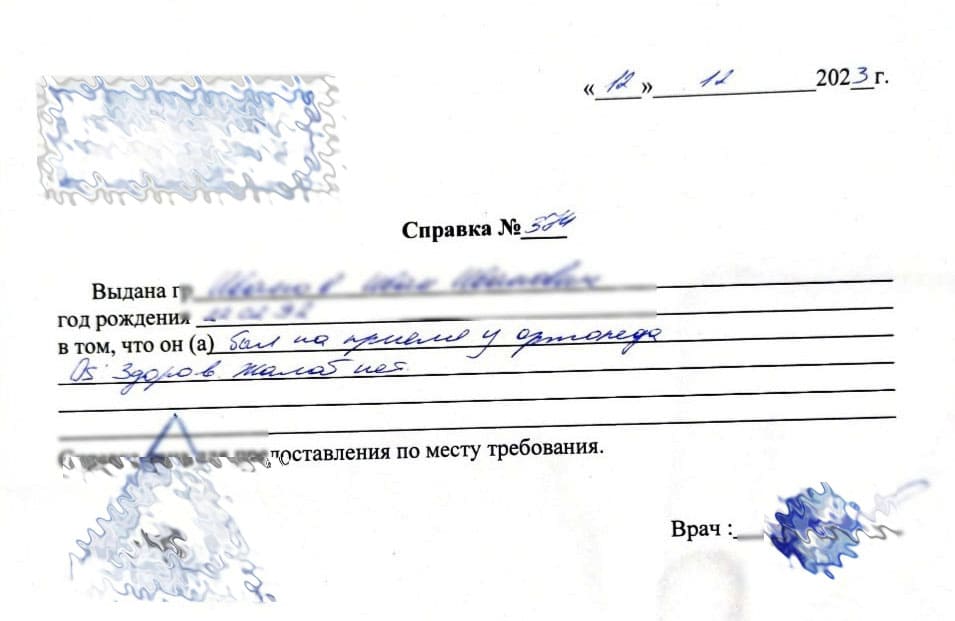 «12» 12 2023 г.
Справка № 574
Выдана
год рождения
в том, что он (а) был на приеме у ортопеда
Ds: Здоров. Жалоб нет.
предоставления по месту требования.
Врач :